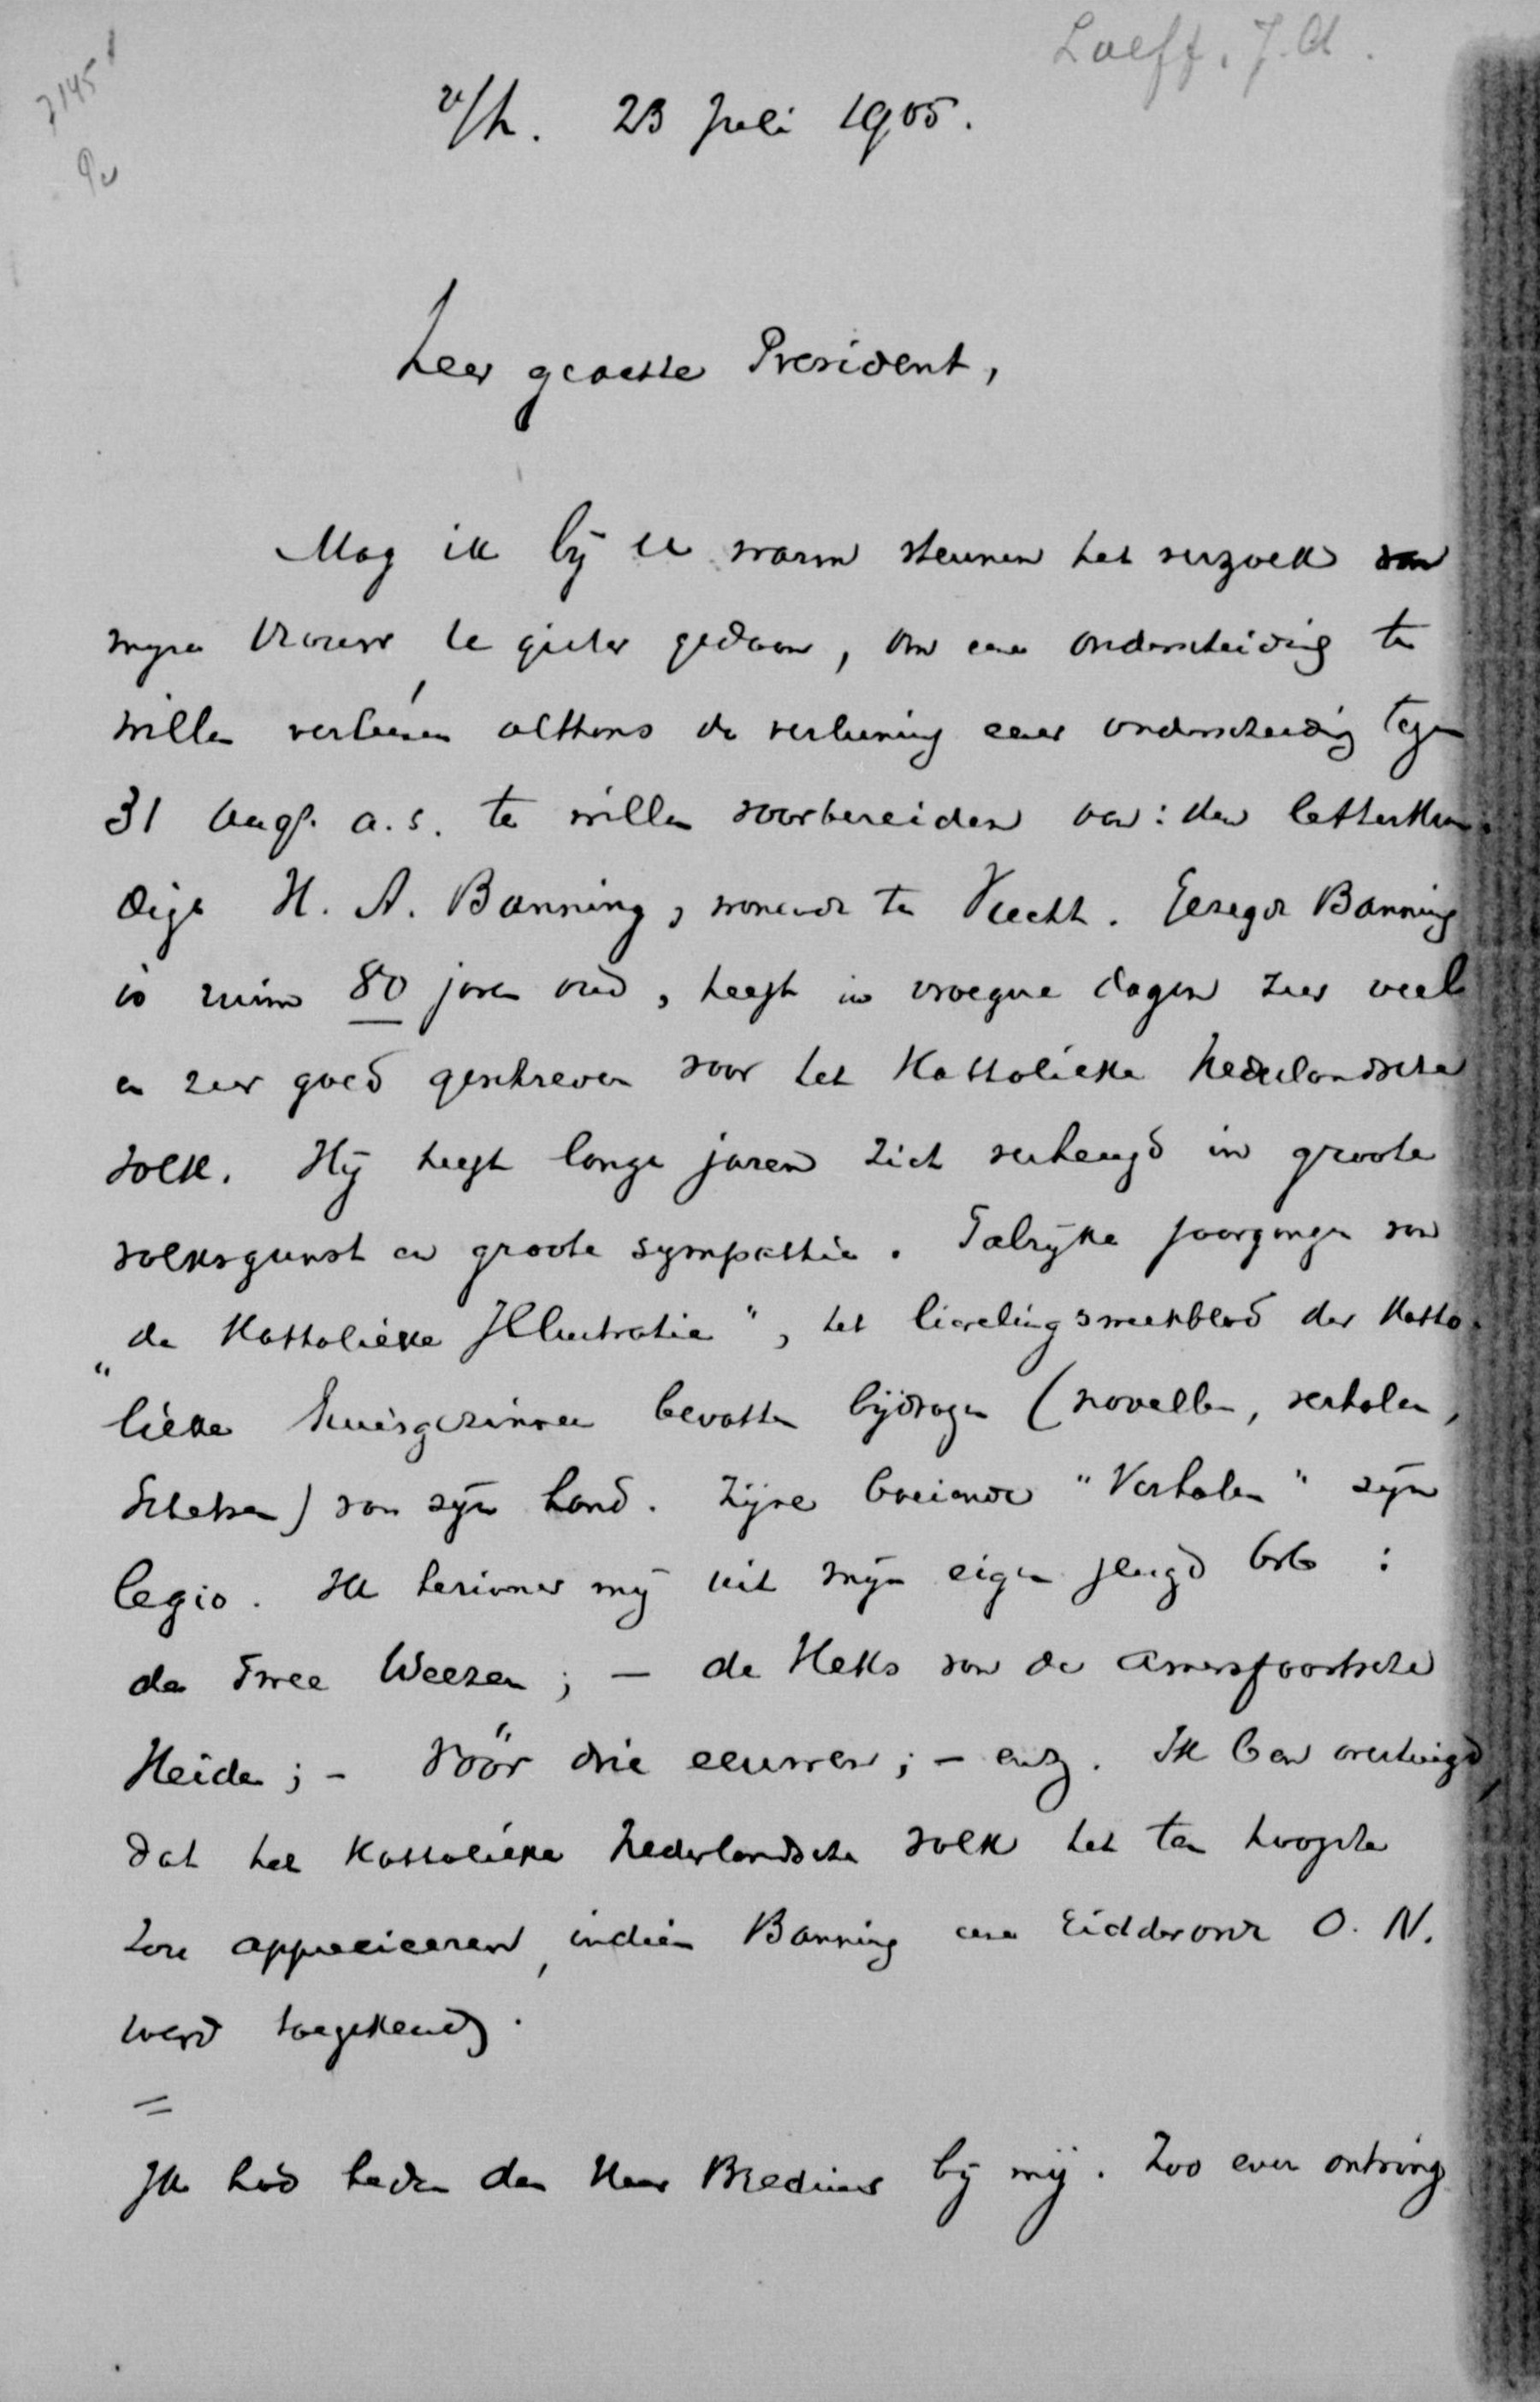 Loeff, J.A.
7145
v/h. 23 Juli 1905.
Zeer geachte President,
Mag ik bij U warm steunen het verzoek van
mijne vrouw te gedaan, om eene onderscheiding te
willen verleenen althans de verleening eener onderscheiding tegen
31 Aug. a.s. te willen voorbereiden van: den letterkun-
dige H. A. Banning, wonende te Vucht. Gezegde Banning
is ruim 80 jaren oud, heeft in vroegere dagen zeer veel
en zeer goed geschreven voor het Katholieke Nederlandsche
volk. Hij heeft lange jaren zich verheugd in groote
volksgunst en groote sympathie. Talrijke jaargangen van
"de Katholieke Illustratie", het lievelingsweekblad der Katho-
lieke huisgezinnen bevatten bijdragen (novellen, verhalen,
Schetsen) van zijn hand. Zijne boeiende "Verhalen" zijn
legio. Ik herinner mij uit mijn eigen jeugd bvb :
de Twee Weezen; - de Heks van de Amersfoortsche
Heide; - Vóór drie eeuwen; - enz. Ik ben overtuigd,
dat het Katholieke Nederlandsche volk het ten hoogste
zou apprecieeren, indien Banning eene Ridderorde O. N.
werd toegekend.
=
Ik had heden den Heer Bredius bij mij. Zoo even ontving